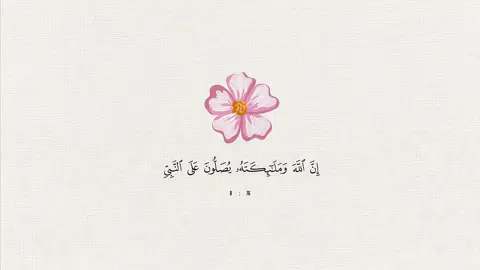 إِنَّ ٱللَّهَ وَمَلَـٰٓئِكَتَهُۥ يُصَلُّونَ عَلَى ٱلنَّبِىِّ